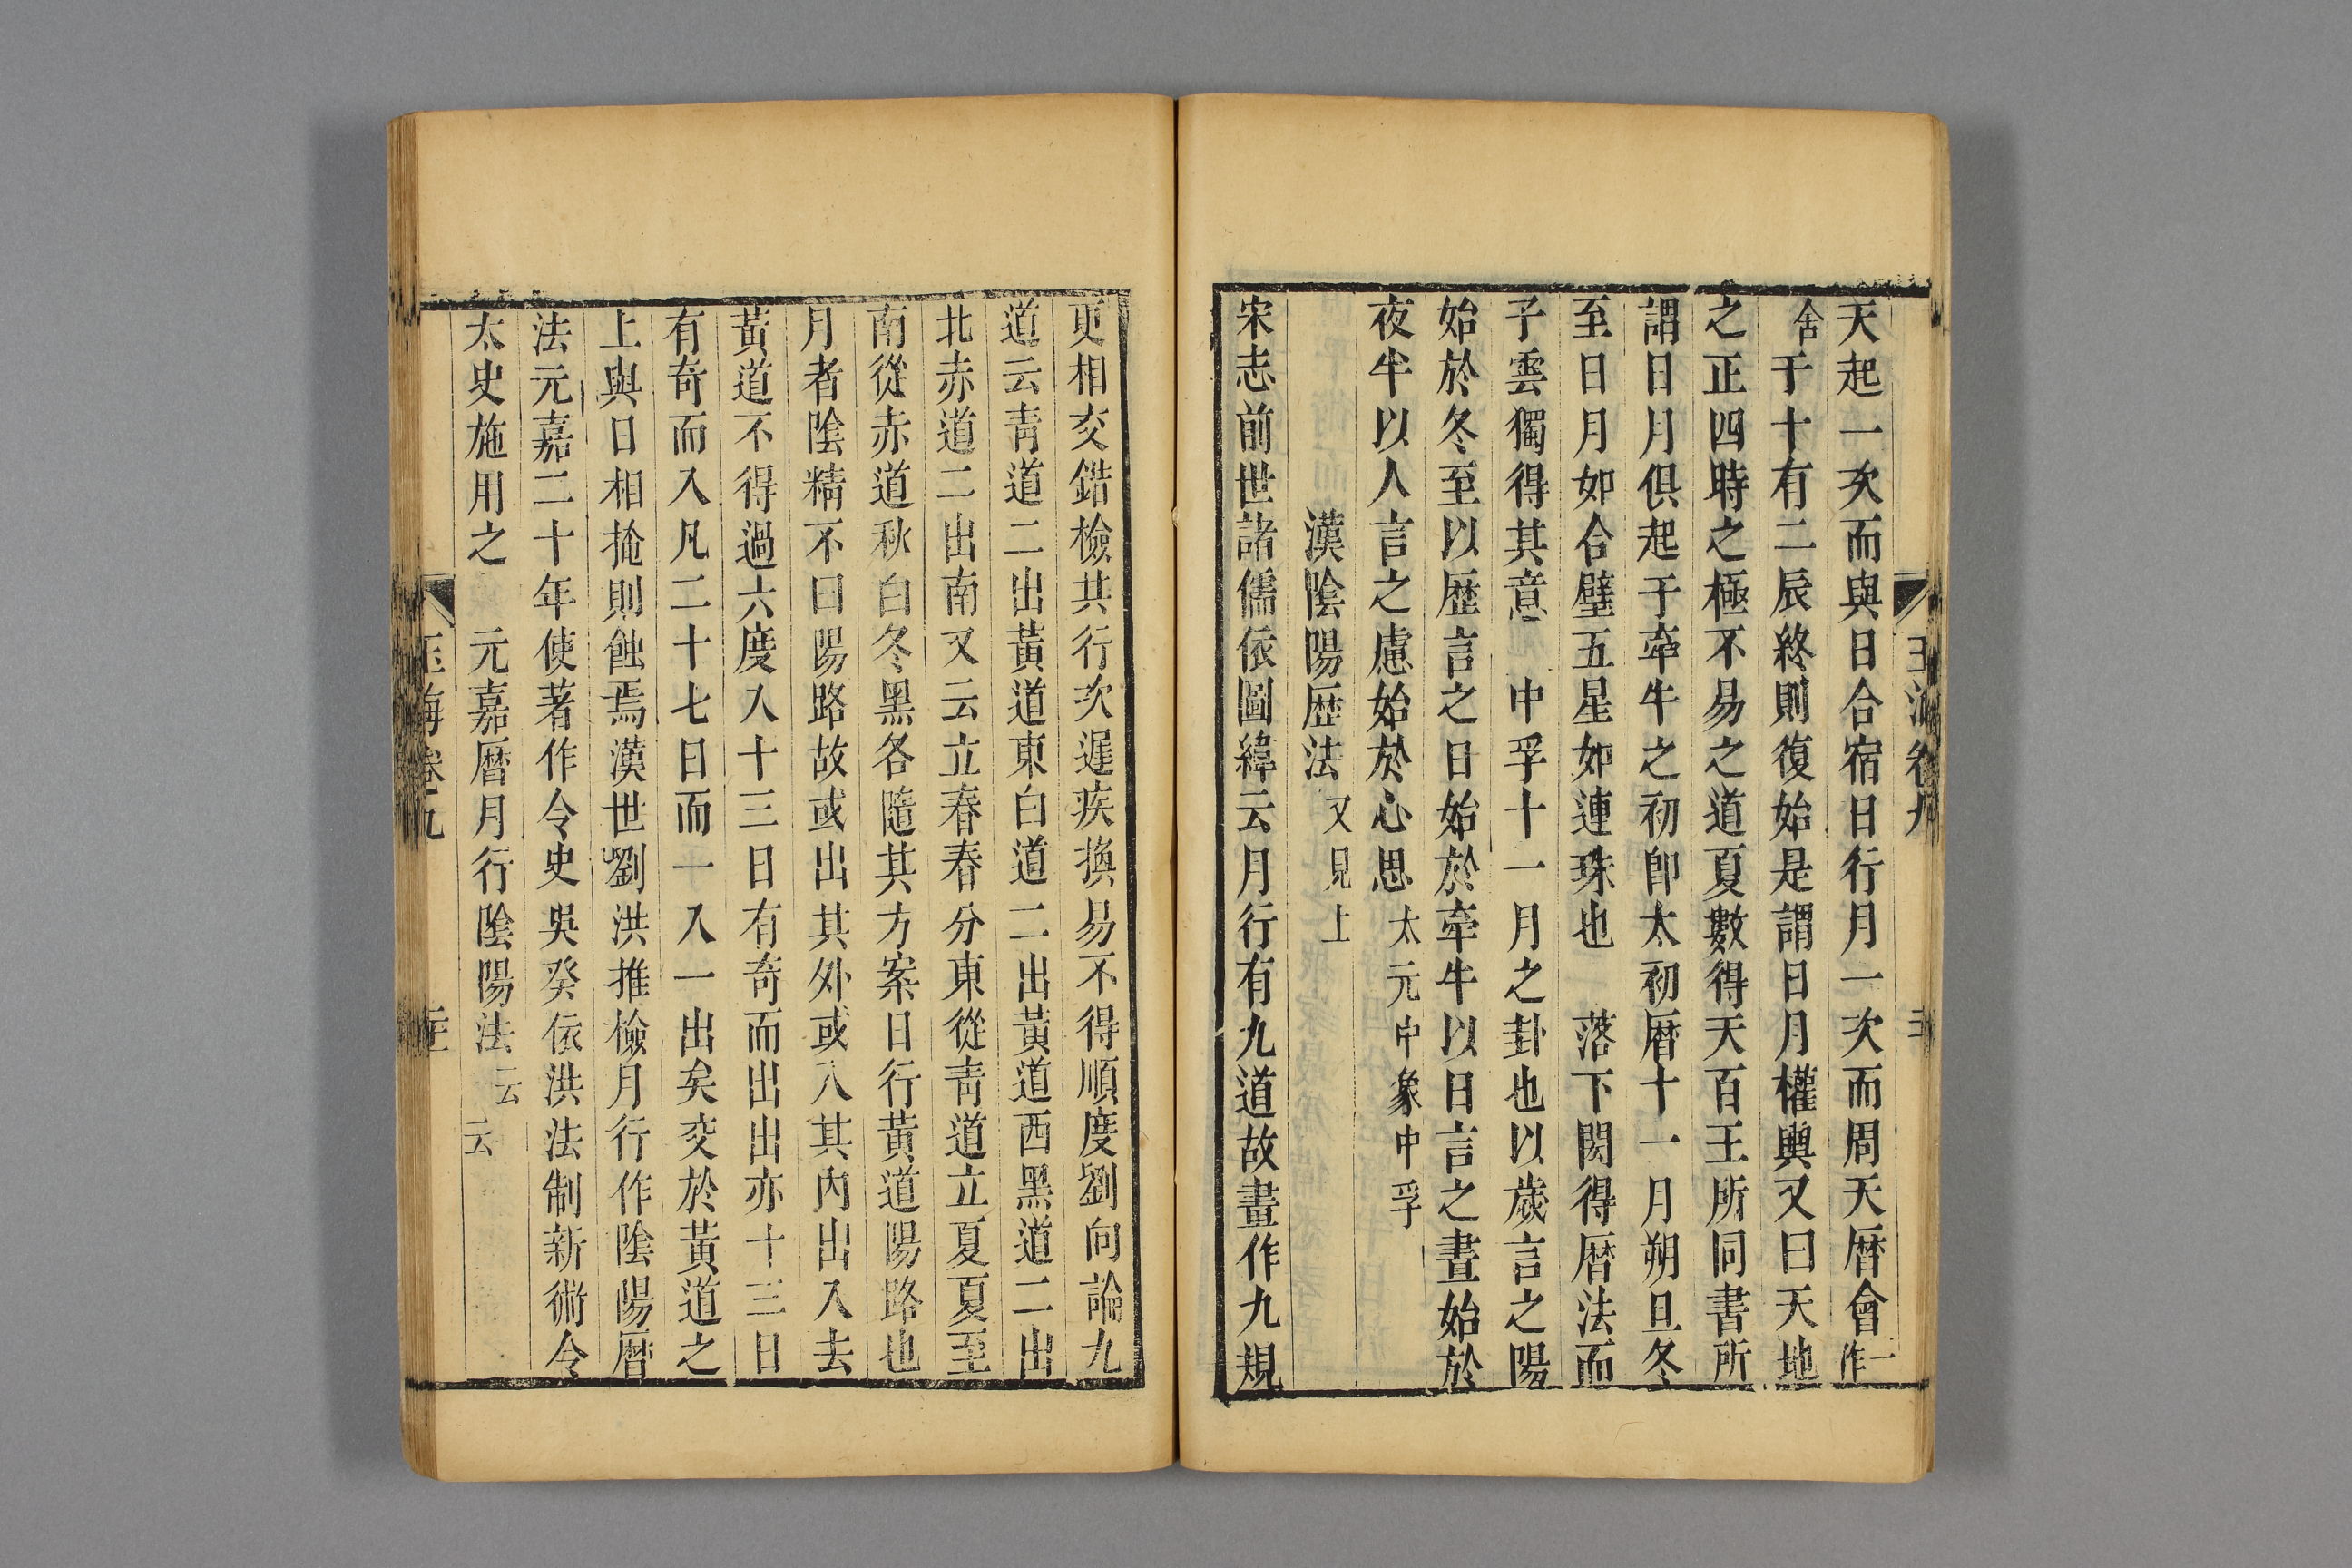 天起一次而與日合宿日行月一次而周天曆會一作
舍于十有二辰終則復始是謂日月權輿又曰天地
之正四時之極不易之道夏數得天百王所同書所
謂日月俱起于牽牛之初卽太初曆十一月朔旦冬
至日月如合璧五星如連珠也 落下閎得曆法而
子雲獨得其意 中孚十一月之卦也以歲言之陽
始於冬至以歷言之日始於牽牛以日言之晝始於
夜半以人言之慮始於心思 太元中象中孚
漢陰陽歷法 又見上
宋志前世諸儒依圖緯云月行有九道故畫作九規
更相交錯檢其行次遲疾換易不得順度劉向論九
道云青道二出黃道東白道二出黃道西黑道二出
北赤道二出南又云立春春分東從青道立夏夏至
南從赤道秋白冬黑各隨其方案日行黃道陽路也
月者陰精不曰陽路故或出其外或入其內出入去
黃道不得過六度入十三日有奇而出出亦十三日
有奇而入凡二十七日而一入一出矣交於黃道之
上與日相掩則蝕焉漢世劉洪推檢月行作陰陽曆
法元嘉二十年使著作令史吳癸依洪法制新術令
太史施用之 元嘉曆月行陰陽法云云
玉海卷九